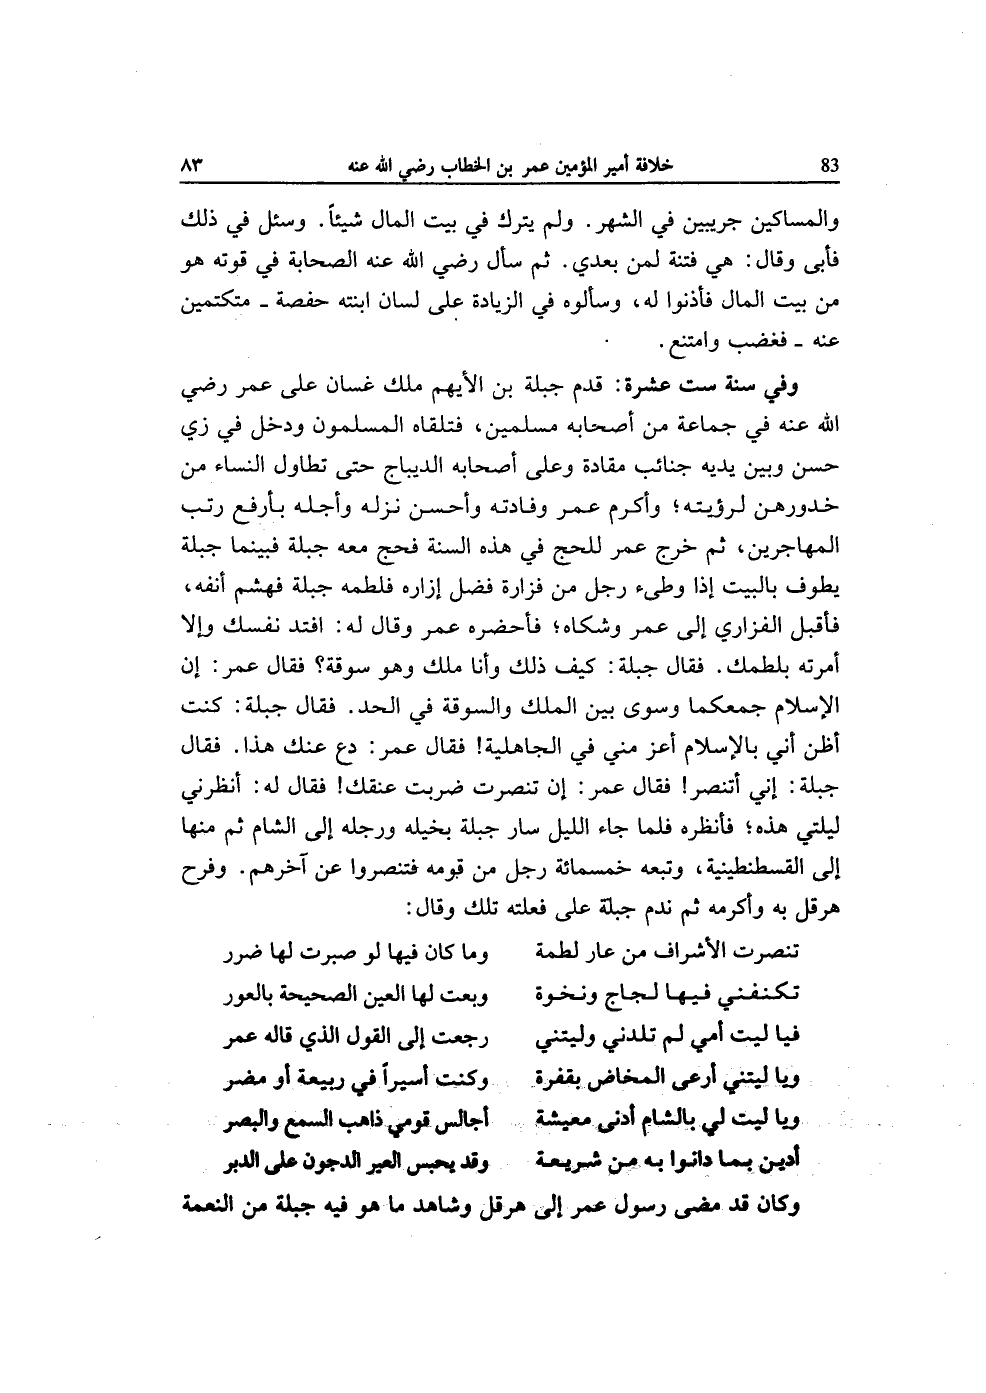 83 خلافة أمير المؤمنين عمر بن الخطاب رضي الله عنه ٨٣
والمساكين جريبين في الشهر. ولم يترك في بيت المال شيئاً. وسئل في ذلك
فأبى وقال: هي فتنة لمن بعدي. ثم سأل رضي الله عنه الصحابة في قوته هو
من بيت المال فأذنوا له، وسألوه في الزيادة على لسان ابنته حفصة ـ متكتمين
عنه ـ فغضب وامتنع.
وفي سنة ست عشرة: قدم جبلة بن الأيهم ملك غسان على عمر رضي
الله عنه في جماعة من أصحابه مسلمين، فتلقاه المسلمون ودخل في زي
حسن وبين يديه جنائب مقادة وعلى أصحابه الديباج حتى تطاول النساء من
خدورهن لرؤيته؛ وأكرم عمر وفادته وأحسن نزله وأجله بأرفع رتب
المهاجرين، ثم خرج عمر للحج في هذه السنة فحج معه جبلة فبينما جبلة
يطوف بالبيت إذا وطىء رجل من فزارة فضل إزاره فلطمه جبلة فهشم أنفه،
فأقبل الفزاري إلى عمر وشكاه؛ فأحضره عمر وقال له: افتد نفسك وإلا
أمرته بلطمك. فقال جبلة: كيف ذلك وأنا ملك وهو سوقة؟ فقال عمر: إن
الإسلام جمعكما وسوى بين الملك والسوقة في الحد. فقال جبلة: كنت
أظن أني بالإسلام أعز مني في الجاهلية! فقال عمر: دع عنك هذا. فقال
جبلة: إني أتنصر! فقال عمر: إن تنصرت ضربت عنقك! فقال له: أنظرني
ليلتي هذه؛ فأنظره فلما جاء الليل سار جبلة بخيله ورجله إلى الشام ثم منها
إلى القسطنطينية، وتبعه خمسمائة رجل من قومه فتنصروا عن آخرهم. وفرح
هرقل به وأكرمه ثم ندم جبلة على فعلته تلك وقال:
تنصرت الأشراف من عار لطمة وما كان فيها لو صبرت لها ضرر
تكنفني فيها لجاج ونخوة وبعت لها العين الصحيحة بالعور
فيا ليت أمي لم تلدني وليتني رجعت إلى القول الذي قاله عمر
ويا ليتني أرعى المخاض بقفرة وكنت أسيراً في ربيعة أو مضر
ويا ليت لي بالشام أدنى معيشة أجالس قومي ذاهب السمع والبصر
أدين بما دانوا به من شريعة وقد يحبس العير الدجون على الدبر
وكان قد مضى رسول عمر إلى هرقل وشاهد ما هو فيه جبلة من النعمة